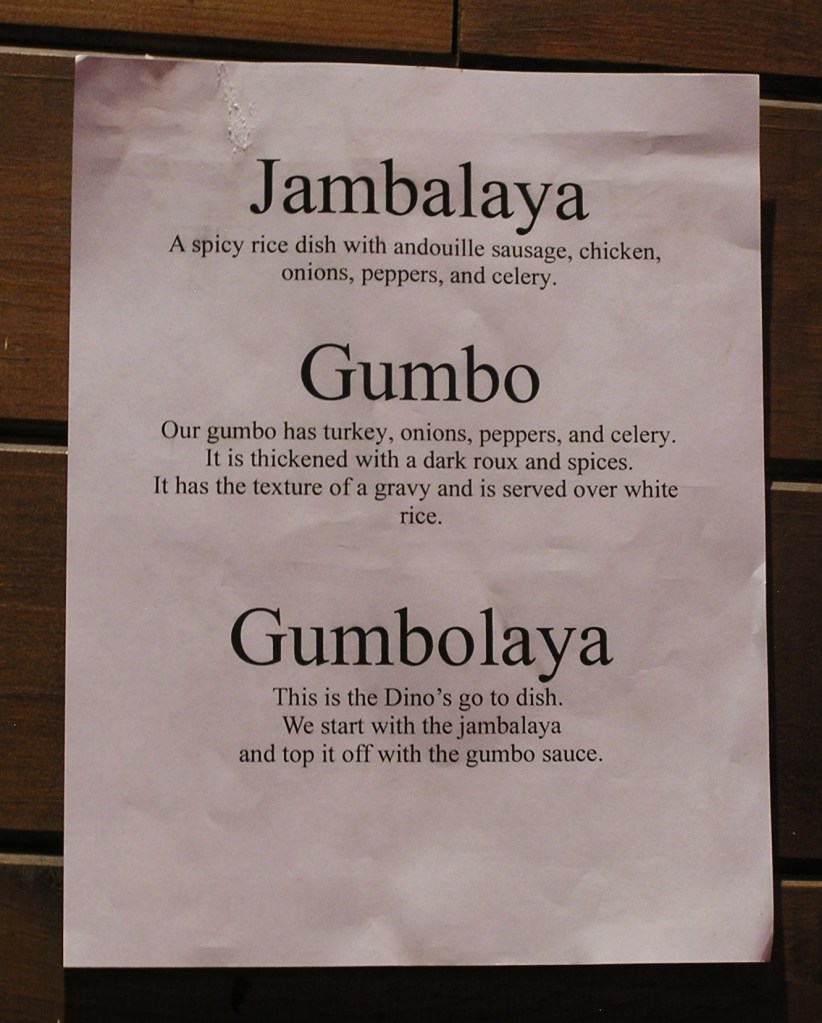 Jambalaya
A spicy rice dish with andouille sausage, chicken,
onions, peppers, and celery.
Gumbo
Our gumbo has turkey, onions, peppers, and celery.
It is thickened with a dark roux and spices.
It has the texture of a gravy and is served over white
rice.
Gumbolaya
This is the Dino’s go to dish.
We start with the jambalaya
and top it off with the gumbo sauce.